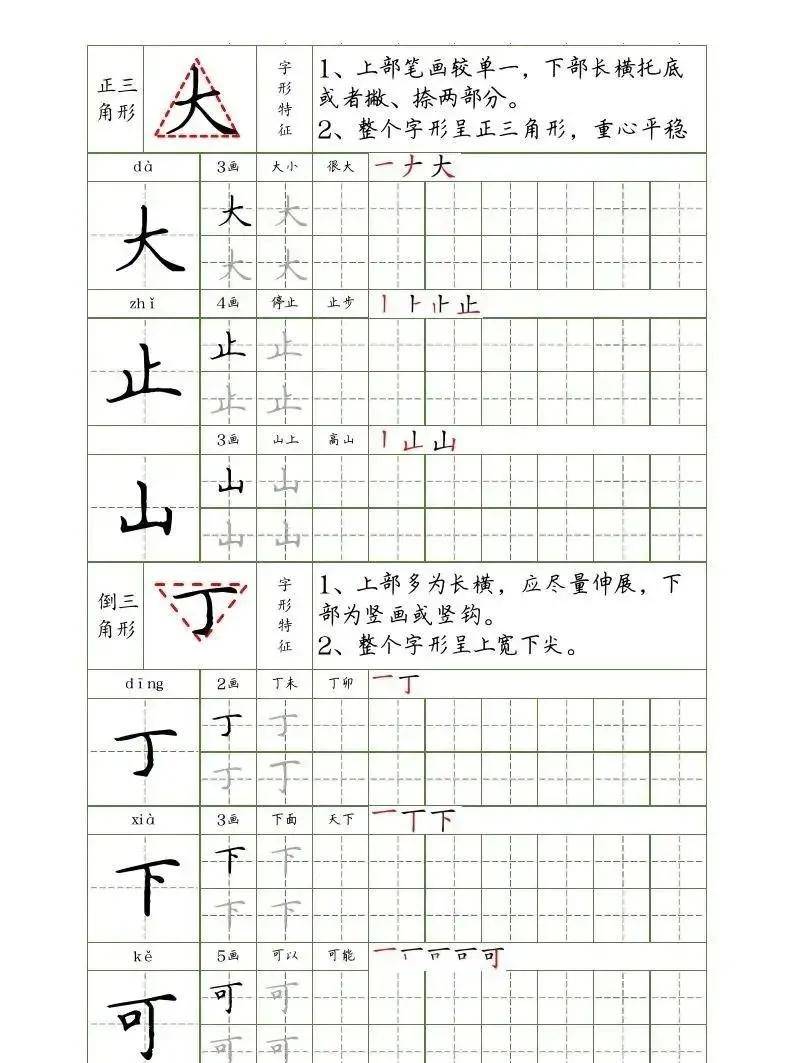 正三
角形
大
字形特征
1、上部笔画较单一，下部长横托底
或者撇、捺两部分。
2、整个字形呈正三角形，重心平稳
dà 3画 大小 很大 一ナ大
大 大 大
大 大
zhǐ 4画 停止 止步 丨⺊止
止 止 止
止 止
3画 山上 高山 丨山
山 山 山
山 山
倒三
角形
丁
字形特征
1、上部多为长横，应尽量伸展，下
部为竖画或竖钩。
2、整个字形呈上宽下尖。
dīng 2画 丁未 丁卯 一丁
丁 丁 丁
丁 丁
xià 3画 下面 天下 一丅下
下 下 下
下 下
kě 5画 可以 可能 一可
可 可 可
可 可